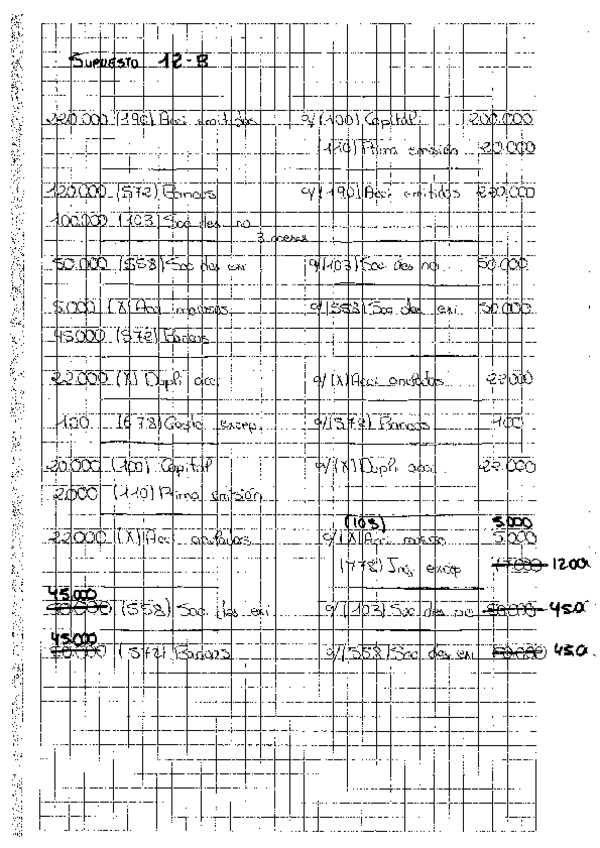 SUPUESTO 12-B
220.000 (190) Acci emitidas a/(100) Capital 200.000
(110) Prima emisión 20.000
120.000 (572) Bancos a/(190) Acci emitidas 220.000
100.000 (103) Soc des no
3 meses
50.000 (558) Soc des exi a/(103) Soc des no 50.000
5.000 (X) Acc morosos a/(558) Soc des exi 50.000
45.000 (572) Bancos
22.000 (X) Dupli acc a/(X) Acci anuladas 22.000
100 (678) Gasto excep. a/(572) Bancos 100
20.000 (100) Capital a/(X) Dupli acci 22.000
2.000 (110) Prima emisión
(103) 5.000
22.000 (X) Acci anuladas a/(X) Acci moroso 5.000
(778) Ing excep 17.000 1200
45.000
50.000 (558) Soc des exi a/(103) Soc des no 50.000 450
45.000
50.000 (572) Bancos a/(558) Soc des exi 50.000 450